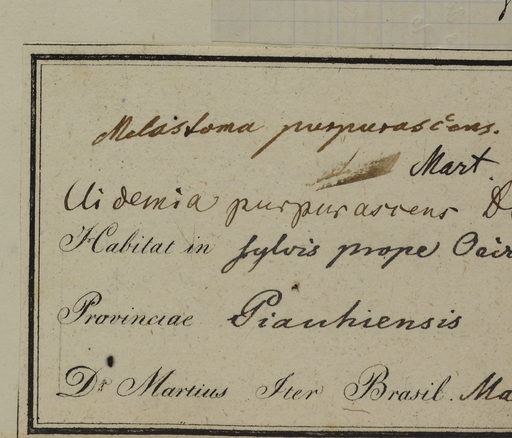 Melastoma purpurascens.
Mart.
Clidemia purpurascens D
Habitat in sylvis prope Oeir
Provinciae Piauhiensis
Dr. Martius Iter Brasil. Ma